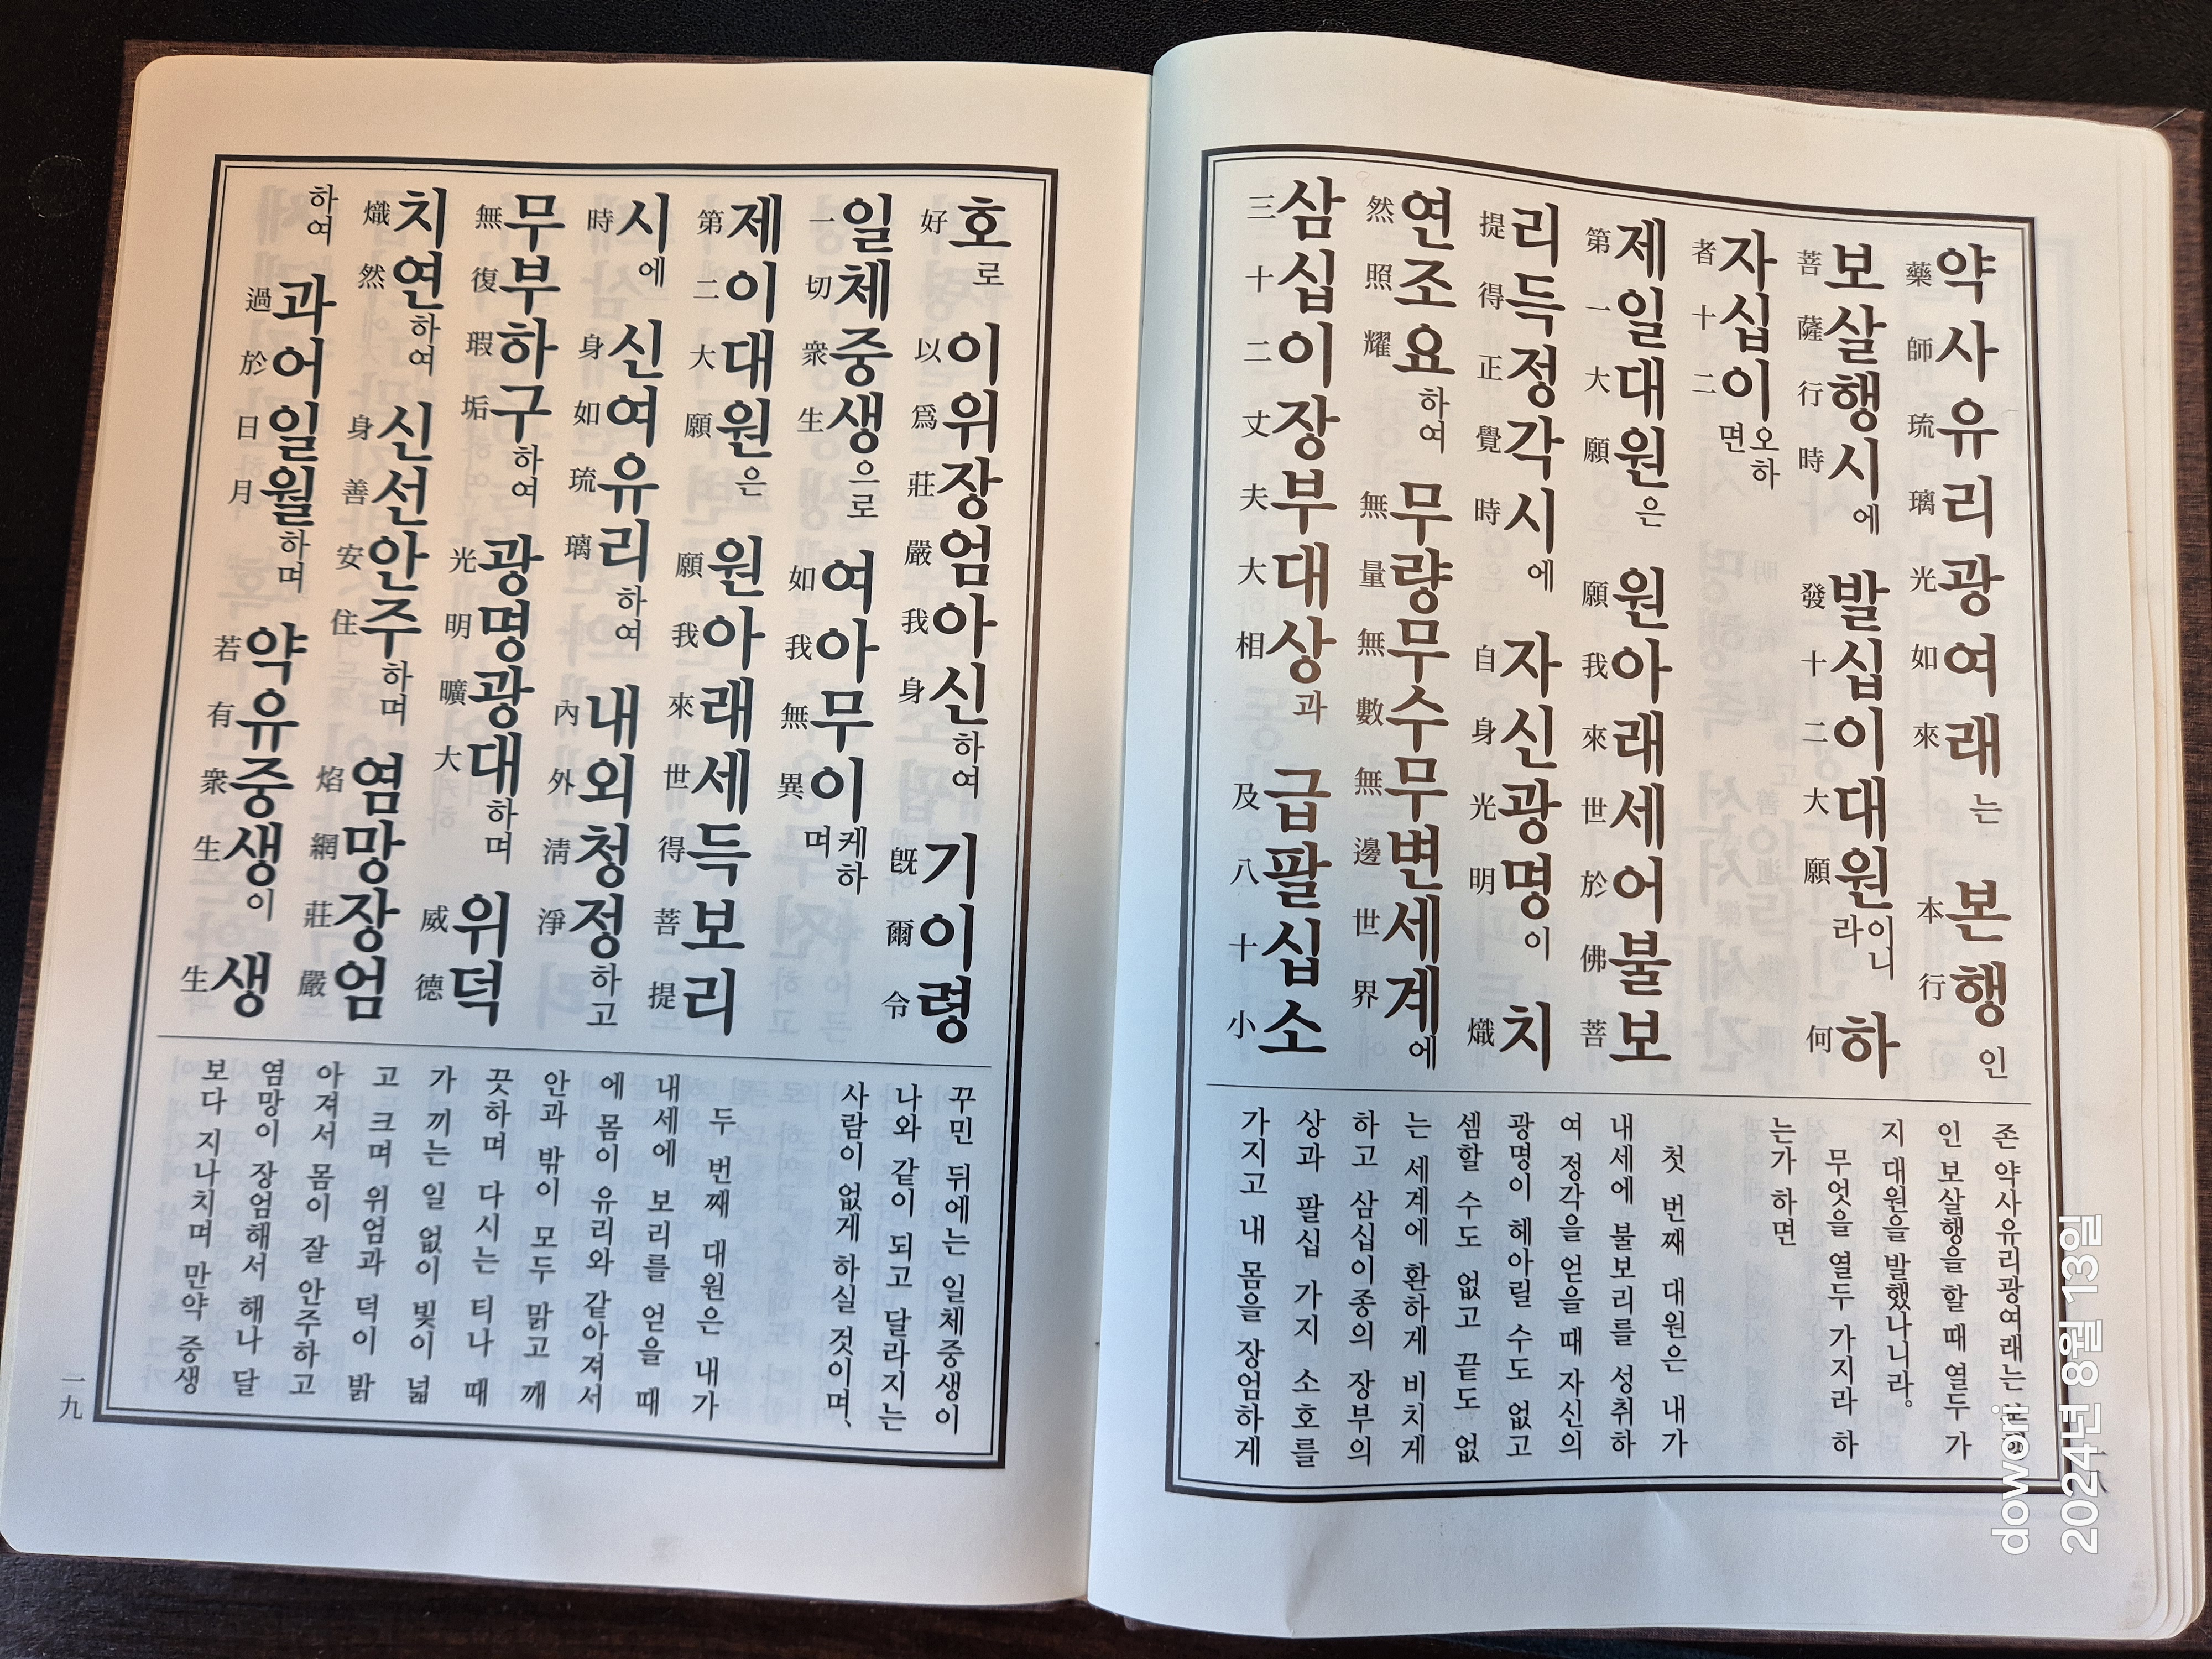 약사유리광여래는 본행인
藥師琉璃光如來 本行
보살행시에 발십이대원이니라 하
菩薩行時 發十二大願 何
자십이오하면
者十二
제일대원은 원아래세어불보
第一大願 願我來世於佛菩
리득정각시에 자신광명이 치
提得正覺時 自身光明 熾
연조요하여 무량무수무변세계에
然照耀 無量無數無邊世界
삼십이장부대상과 급팔십소
三十二丈夫大相 及八十小
존 약사유리광여래는
인 보살행을 할 때 열두 가
지 대원을 발했나니라。
무엇을 열두 가지라 하
는가 하면
첫 번째 대원은 내가
내세에 불보리를 성취하
여 정각을 얻을 때 자신의
광명이 헤아릴 수도 없고
셈할 수도 없고 끝도 없
는 세계에 환하게 비치게
하고 삼십이종의 장부의
상과 팔십 가지 소호를
가지고 내 몸을 장엄하게
호로 이위장엄아신하여 기이령
好 以爲莊嚴我身 旣爾令
일체중생으로 여아무이케하며
一切衆生 如我無異
제이대원은 원아래세득보리
第二大願 願我來世得菩提
시에 신여유리하여 내외청정하고
時 身如琉璃 內外淸淨
무부하구하여 광명광대하며 위덕
無復瑕垢 光明曠大 威德
치연하여 신선안주하며 염망장엄
熾然 身善安住 焰網莊嚴
하여 과어일월하며 약유중생이 생
過於日月 若有衆生 生
꾸민 뒤에는 일체중생이
나와 같이 되고 달라지는
사람이 없게 하실 것이며、
두 번째 대원은 내가
내세에 보리를 얻을 때
에 몸이 유리와 같아져서
안과 밖이 모두 맑고 깨
끗하며 다시는 티나 때
가 끼는 일 없이 빛이 넓
고 크며 위엄과 덕이 밝
아져서 몸이 잘 안주하고
염망이 장엄해서 해나 달
보다 지나치며 만약 중생
一九
dowori
2024년 8월 13일